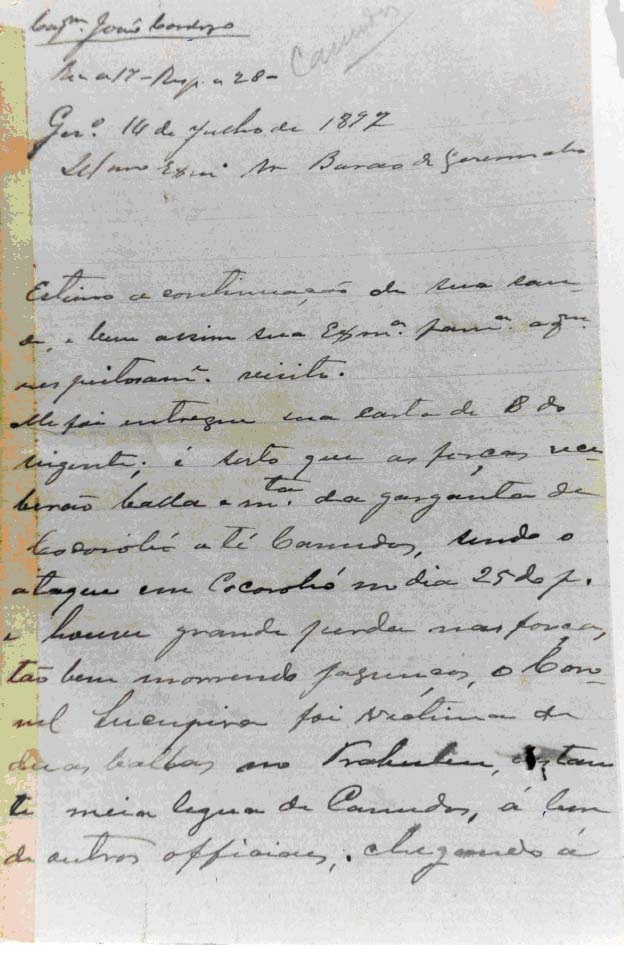 Cap.m João Cardozo
Canudos
Re. a 17 - Resp. a 28 -
Ger.o 14 de Julho de 1897
Ill.mo Exm.o Snr Barão de Geremoabo
Estimo a continuação de sua sau
de, e bem assim sua Exm.a fam.a aq.m
respeitosam.e visito.
Me foi entregue sua carta de 8 do
vigente; é serto que as forças rece
berão balla e m.ta da garganta de
Cocorobó até Canudos, sendo o
ataque em Cocorobó no dia 25 do p.
e houve grande perda nas forças,
tão bem morrendo jagunços, o Coro-
nel Sucupira foi victima de
duas ballas no Trabubu, distan
te meia legua de Canudos, á lem
de outros officiaes, chegando á